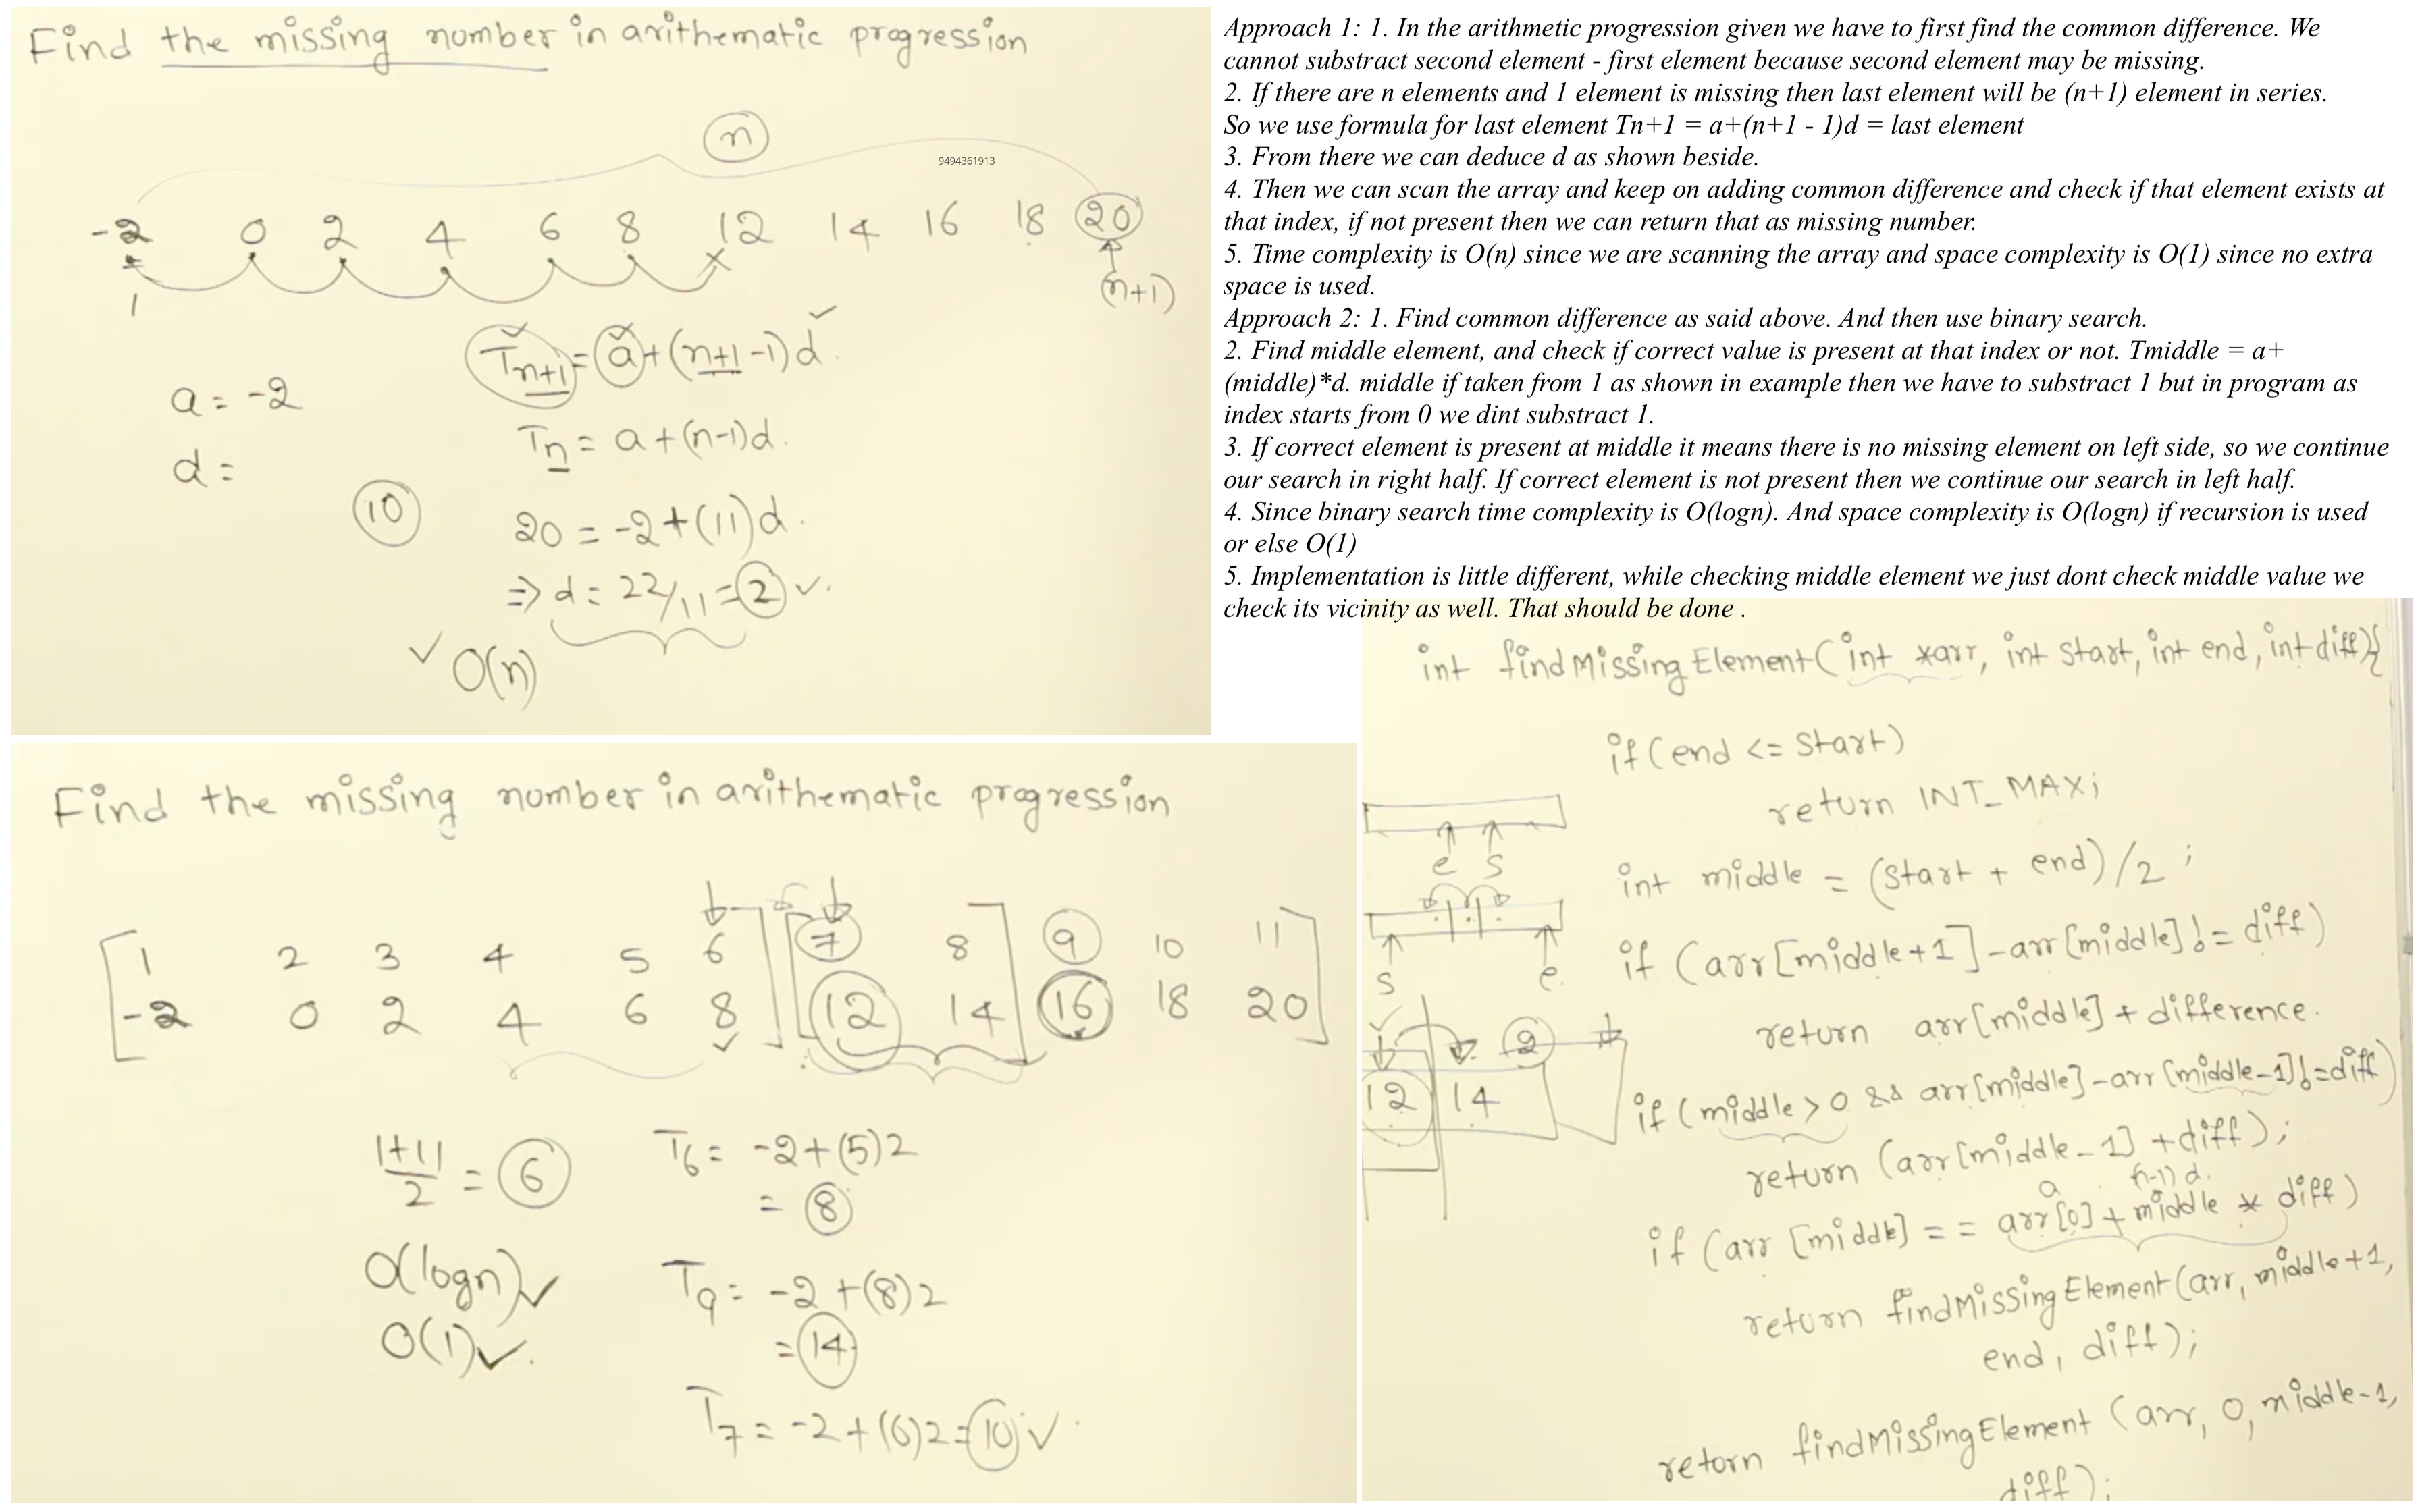 Find the missing number in arithematic progression
n
9494361913
-2 0 2 4 6 8 12 14 16 18 20
1
(n+1)
Tn+1 = a+(n+1-1)d
a = -2
Tn = a+(n-1)d.
d =
10
20 = -2+(11)d.
=> d = 22/11 = 2
O(n)
Approach 1: 1. In the arithmetic progression given we have to first find the common difference. We
cannot substract second element - first element because second element may be missing.
2. If there are n elements and 1 element is missing then last element will be (n+1) element in series.
So we use formula for last element Tn+1 = a+(n+1 - 1)d = last element
3. From there we can deduce d as shown beside.
4. Then we can scan the array and keep on adding common difference and check if that element exists at
that index, if not present then we can return that as missing number.
5. Time complexity is O(n) since we are scanning the array and space complexity is O(1) since no extra
space is used.
Approach 2: 1. Find common difference as said above. And then use binary search.
2. Find middle element, and check if correct value is present at that index or not. Tmiddle = a+
(middle)*d. middle if taken from 1 as shown in example then we have to substract 1 but in program as
index starts from 0 we dint substract 1.
3. If correct element is present at middle it means there is no missing element on left side, so we continue
our search in right half. If correct element is not present then we continue our search in left half.
4. Since binary search time complexity is O(logn). And space complexity is O(logn) if recursion is used
or else O(1)
5. Implementation is little different, while checking middle element we just dont check middle value we
check its vicinity as well. That should be done .
Find the missing number in arithematic progression
1 2 3 4 5 6 7 8 9 10 11
-2 0 2 4 6 8 12 14 16 18 20
1+11/2 = 6
T6 = -2+(5)2
= 8
O(logn)
T9 = -2+(8)2
= 14
O(1)
T7 = -2+(6)2 = 10
int findMissingElement(int *arr, int start, int end, int diff){
if(end <= start)
return INT_MAX;
e s
int middle = (start + end)/2 ;
if (arr[middle+1]-arr[middle] != diff)
s e.
return arr[middle] + difference.
12 14
if (middle > 0 && arr[middle]-arr[middle-1] != diff)
return (arr[middle-1] +diff);
a (n-1) d.
if (arr [middle] == arr[0] + middle * diff)
return findMissingElement(arr, middle+1,
end, diff);
return findMissingElement (arr, 0, middle-1,
diff);